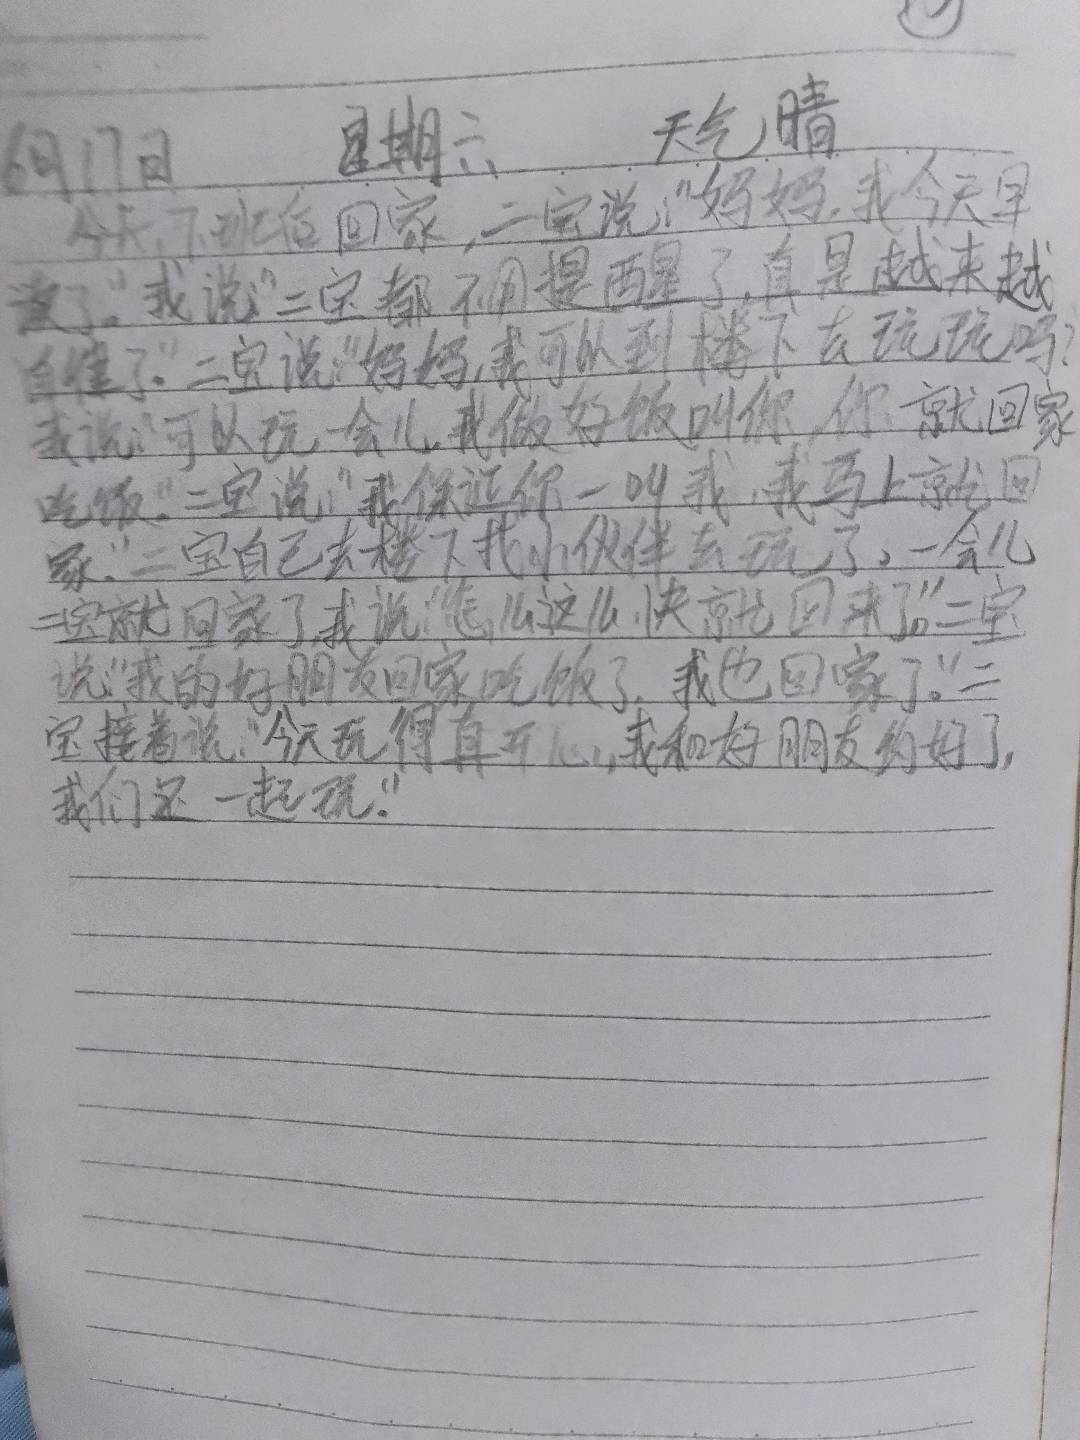 6月17日 星期六 天气晴
今天下班后回家，二宝说：“妈妈，我今天早
读了。”我说：“二宝都不用提醒了，真是越来越
自律了。”二宝说：“妈妈，我可以到楼下去玩玩吗？
我说：“可以玩一会儿，我做好饭叫你，你就回家
吃饭。”二宝说：“我保证你一叫我，我马上就回
家。”二宝自己去楼下找小伙伴去玩了。一会儿
二宝就回家了，我说：“怎么这么快就回来了。”二宝
说：“我的好朋友回家吃饭了，我也回家了。”二
宝接着说：“今天玩得真开心，我和好朋友约好了，
我们还一起玩。”